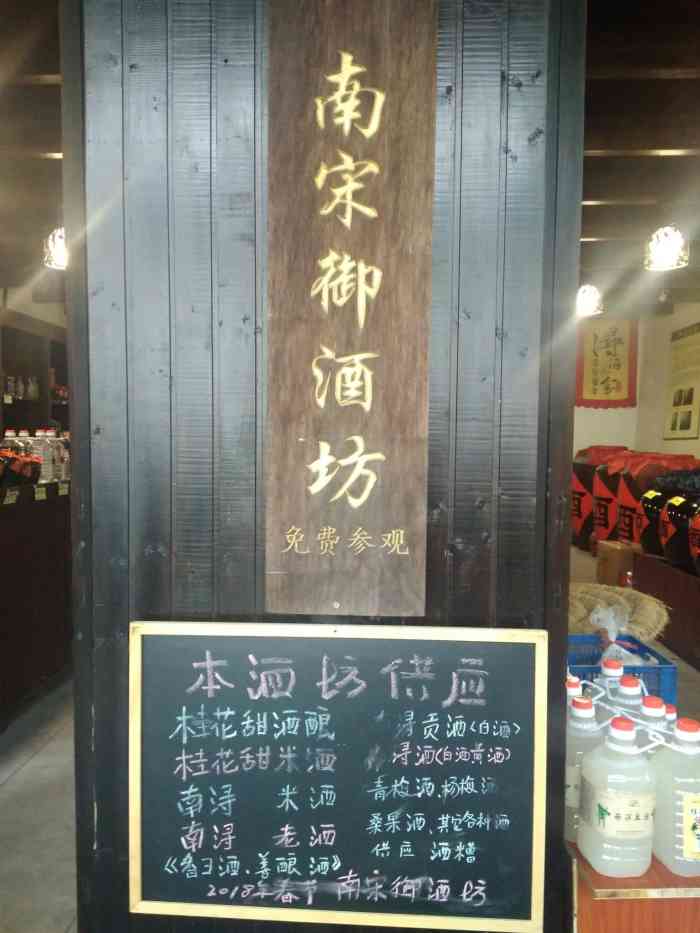 南宋御酒坊
免费参观
本酒坊供应
桂花甜酒酿
桂花甜米酒
南浔 米酒
南浔 老酒
《香王酒、善酿酒》
浔贡酒(白酒)
浔酒(白酒黄酒)
青梅酒、杨梅酒
桑果酒、其它各种酒
供应 酒糟
2018年春节 南宋御酒坊
酒